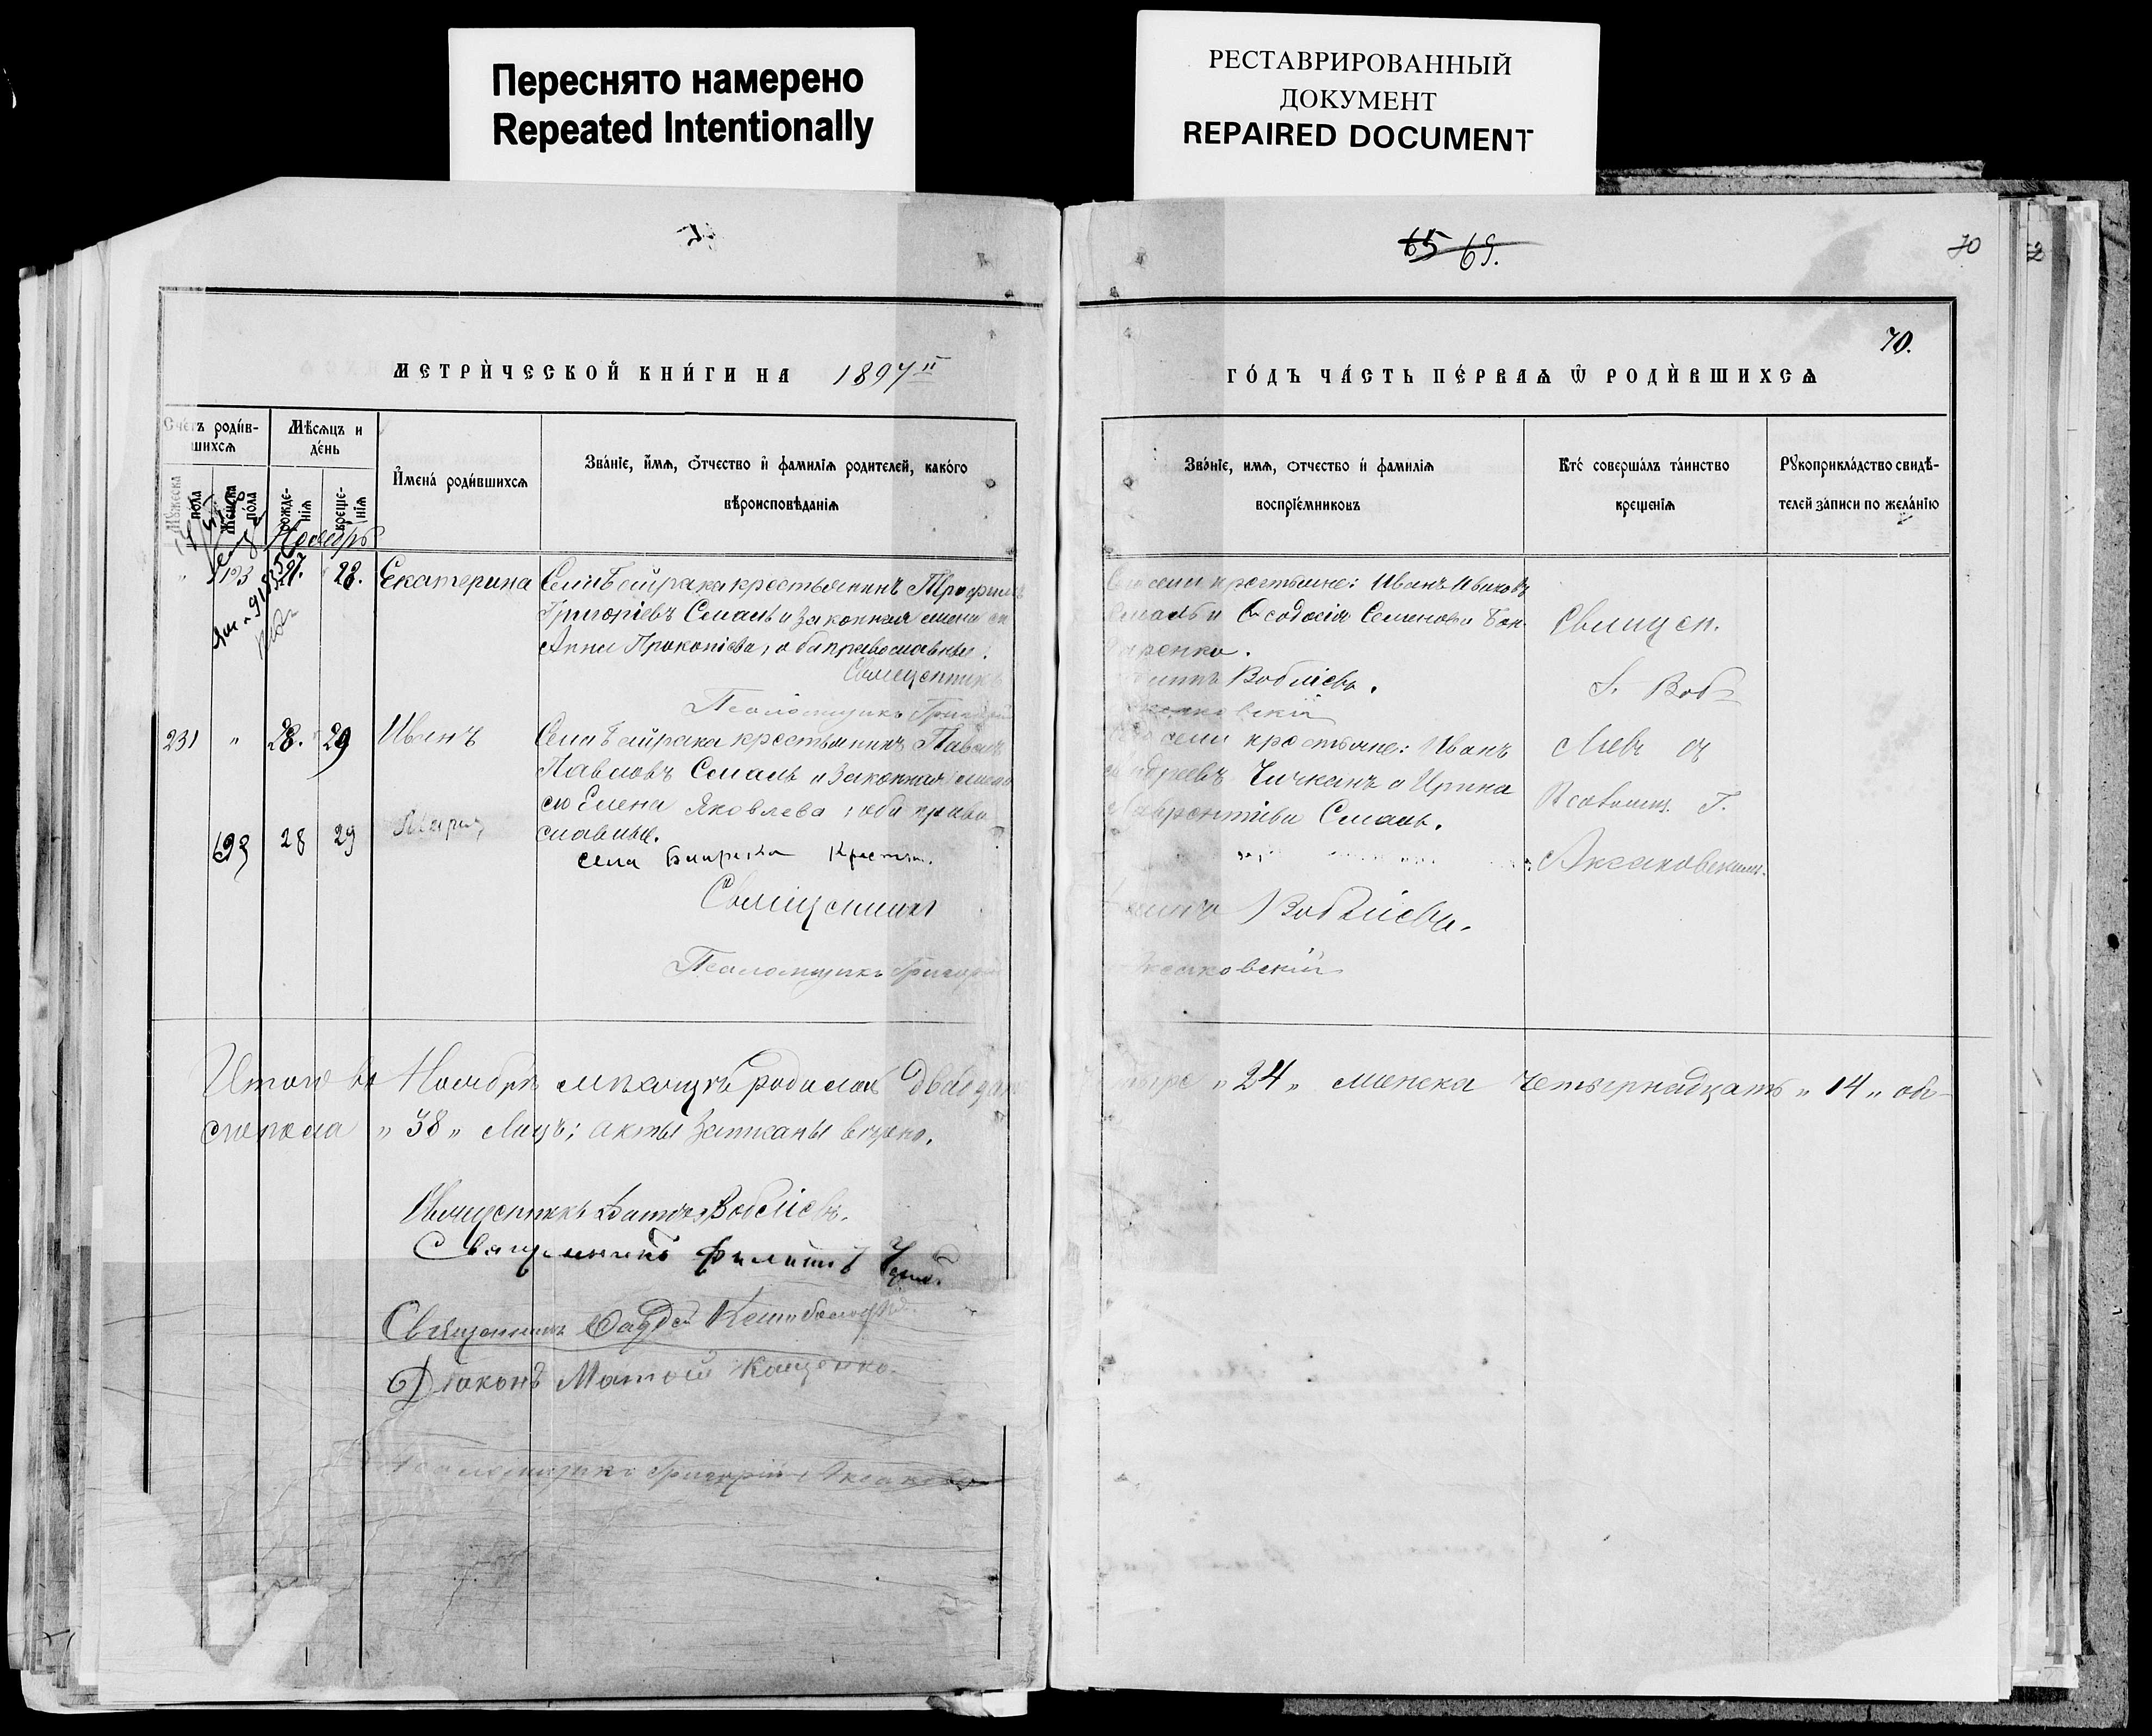 Переснято намерено
Repeated Intentionally
РЕСТАВРИРОВАННЫЙ
ДОКУМЕНТ
REPAIRED DOCUMENT
65 69.
70
70.
МЕТРИ́ЧЕСКОЙ КНИ́ГИ НА 1897
ГО́ДЪ ЧА́СТЬ ПЕ́РВАѦ Ѿ РОДИ́ВШИХСѦ
Счетъ роди́в-
шихсѧ
Мѣсѧцъ и
де́нь
Мꙋжеска
пола
Женска
пола
рожде-
нїѧ
креще-
нїѧ
И҆мена̀ роди́вшихсѧ
Зва́нїе, и҆́мѧ, ѻ҆́тчество и҆ фами́лїѧ родителей, како́го
вѣроисповѣданїѧ
Зва́нїе, имѧ, ѻтчество и҆ фамилїѧ
воспрїе́мниковъ
Кто̀ соверша́лъ та́инство
крещенїѧ
Рꙋкоприкла́дство свидѣ-
телей за́писи по жела́нїю
Ноябрь
27. 28. Екатерина Села Байрака крестьянинъ Трофимъ
Григоріевъ Семаль и законная жена его
Анна Прокопіева, оба православные.
Священникъ
Псаломщикъ Григорій
села крестьяне: Иванъ Ивановъ
Семаль и Ѳеодосія Семенова Бон-
даренко.
Вобліевъ.
Священ.
Воб-
231 " 28. 29 Иванъ Села Байрака крестьянинъ Павелъ
Павловъ Семаль и законная жена
его Елена Яковлева, оба право
славные.
села крестьяне: Иванъ
Андреевъ Чичканъ и Ирина
Лаврентіева Семаль.
ліевъ съ
Псаломщ. Г.
Аксаковскимъ.
693 28 29 Марія
села Байрака Крестьян.
Священникъ
Вобліевъ.
Псаломщикъ Григорій
Аксаковскій
Итого въ Ноябрѣ мѣсяцѣ родилось двадцать
четыре " 24 " женска четырнадцать " 14 " обо-
его пола " 38 " лицъ; акты записаны вѣрно.
Священникъ Вобліевъ.
Священникъ Филиппъ
Священникъ Фаддей
Діаконъ Матѳей Кащенко.
Псаломщикъ Григорій Аксаковскій